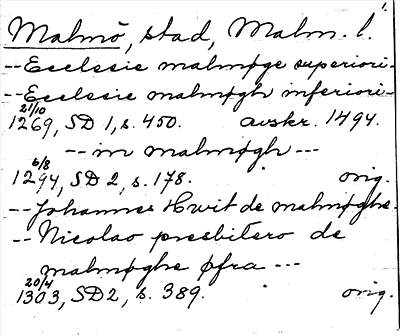 1.
Malmö, stad, Malm. l.
-- Ecclesie malmøge superiori-
-- Ecclesie malmøgh inferiori-
21/10
1269, SD 1, s. 450. avskr. 1494.
-- in malmøgh ---
6/8
1294, SD 2, s. 178. orig.
-- Johannes Hwit de malmøghe-
-- Nicolao presbitero de
malmøghe øfra ---
20/4
1303, SD2, s. 389. orig.